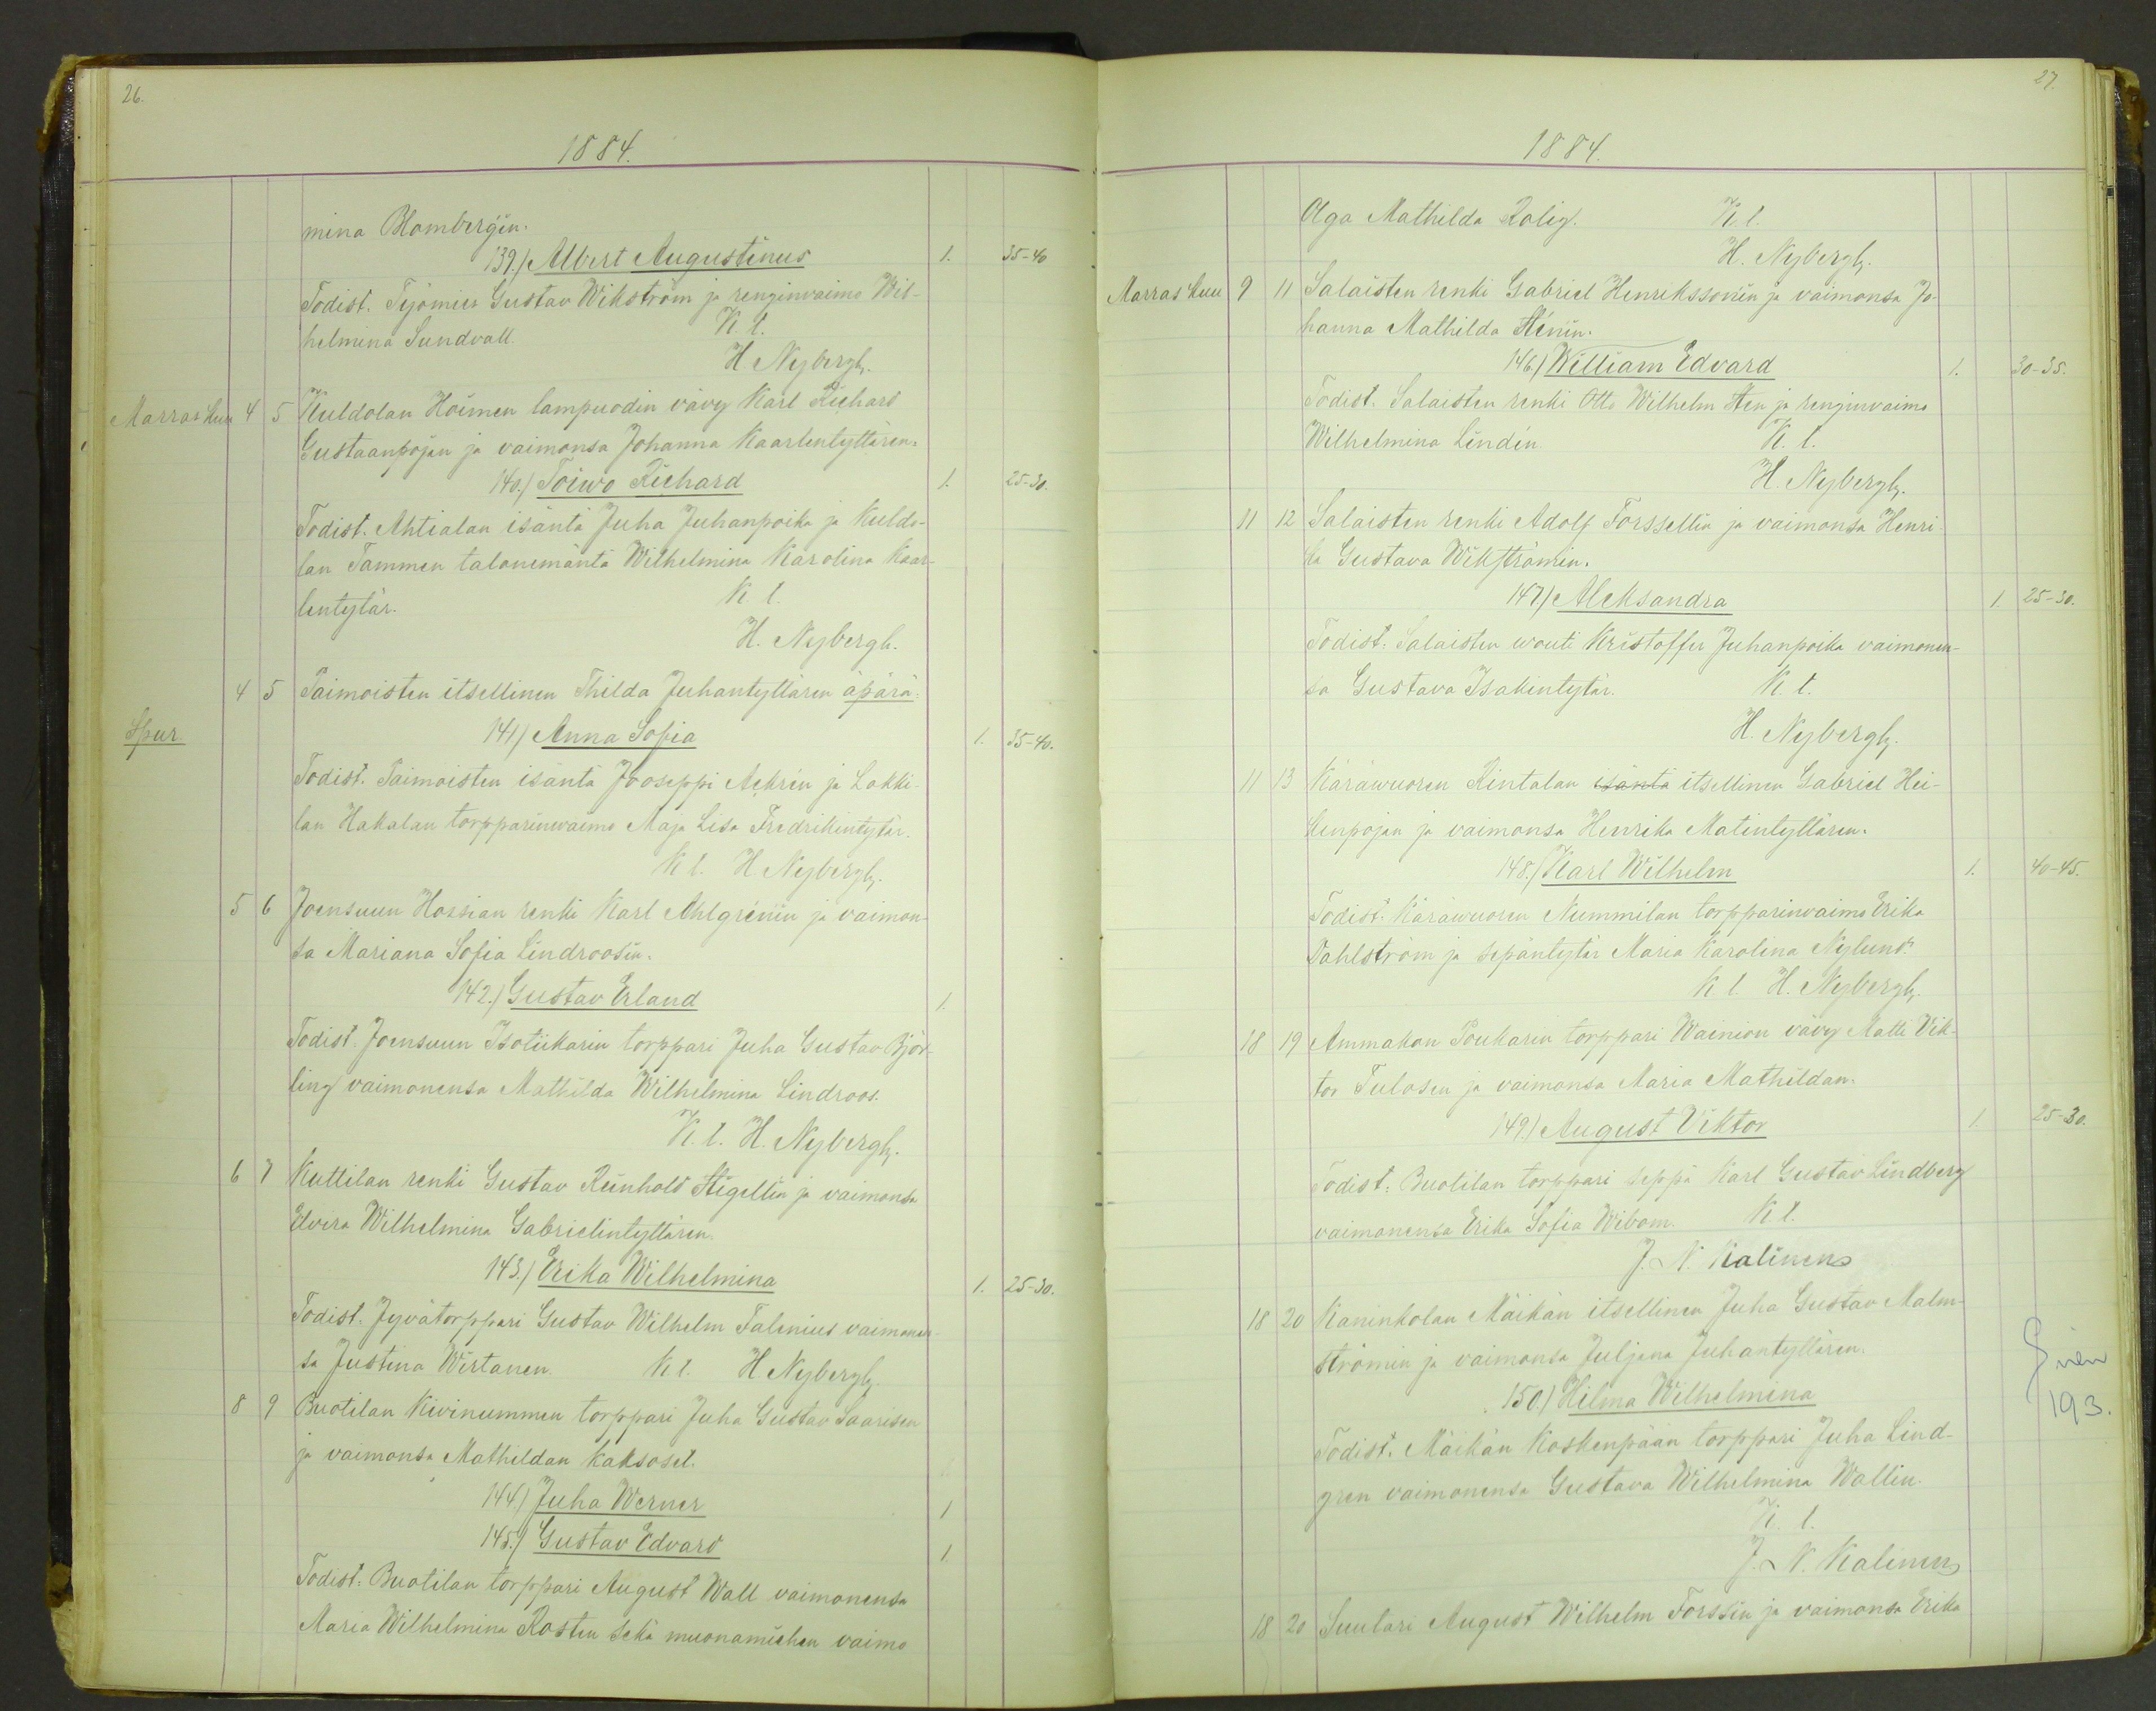 26.
1884.
mina Blombergin.
139.) Albert Augustinus 1. 35-40
Todist. Työmies Gustav Wikström ja renginvaimo Wil-
helmina Sundvall. K. l.
H Nybergh.
Marraskuu 4 5 Kuldolan Hoimen lampuodin vävy Karl Richard
Gustaanpojan ja vaimonsa Johanna Kaarlentyttären.
140.) Toiwo Richard 1. 25-30.
Todist. Ahtialan isäntä Juha Juhanpoika ja Kuldo-
lan Tammen talonemäntä Wilhelmina Karolina Kaar-
lentytär. K. l.
H. Nybergh.
4 5 Paimoisten itsellinen Thilda Juhantyttären äpärä:
Spur. 141) Anna Sofia 1. 35-40.
Todist. Paimoisten isäntä Jooseppi Ackrén ja Lakki-
lan Hakalan torpparinvaimo Maja Lisa Fredrikintytär.
K l. H Nybergh.
5 6 Joensuun Hossian renki Karl Ahlgrénin ja vaimon-
sa Mariana Sofia Lindroosin.
142.) Gustav Erland 1.
Todist. Joensuun Isotiikarin torppari Juha Gustav Björ-
ling vaimonensa Mathilda Wilhelmina Lindroos.
K. l. H. Nybergh.
6 7 Kuttilan renki Gustav Reinhold Stigellin ja vaimonsa
Elvira Wilhelmina Gabrielintyttären.
143.) Erika Wilhelmina 1. 25-30.
Todist. Jyvätorppari Gustav Wilhelm Falenius vaimonen-
sa Justina Wirtanen. K l. H Nybergh.
8 9 Buotilan Kivinummen torppari Juha Gustav Saarisen
ja vaimonsa Mathildan kaksoset.
144.) Juha Werner 1
145.) Gustav Edvard 1.
Todist: Buotilan torppari August Wall vaimonensa
Maria Wilhelmina Rosten sekä muonamiehen vaimo
27.
1884.
Olga Mathilda Rolig. K. l.
H. Nybergh.
Marraskuu 9 11 Salaisten renki Gabriel Henrikssonin ja vaimonsa Jo-
hanna Mathilda Sténin.
146.) William Edvard 1. 30-35.
Todist. Salaisten renki Otto Wilhelm Sten ja renginvaimo
Wilhelmina Lindén. K. l.
H. Nybergh.
11 12 Salaisten renki Adolf Forssellin ja vaimonsa Henri-
ka Gustava Wikströmin.
147.) Aleksandra 1. 25-30.
Todist: Salaisten wouti Kristoffer Juhanpoika vaimonen-
sa Gustava Isakintytär. K. l.
H. Nybergh.
11 13 Käräwuoren Rintalan isäntä itsellinen Gabriel Hei-
kenpojan ja vaimonsa Henrika Matintyttären.
148.) Karl Wilhelm 1. 40-45.
Todist. Käräwuoren Nummilan torpparinvaimo Erika
Dahlström ja sepäntytär Maria Karolina Nylund.
K l. H. Nybergh.
18 19 Ammakon Poukarin torppari Wainion vävy Matti Vik-
tor Tulosen ja vaimonsa Maria Mathildan.
149.) August Viktor 1. 25-30.
Todist: Buotilan torppari seppä Karl Gustav Lindberg
vaimonensa Erika Sofia Wibom. K l.
J. N. Kalinens
18 20 Kaninkolan Mäikän itsellinen Juha Gustav Malm-
strömin ja vaimonsa Juljana Juhantyttären.
150.) Hilma Wilhelmina
193.
Todist. Mäikän Koskenpään torppari Juha Lind-
gren vaimonensa Gustava Wilhelmina Wallin.
K. l.
J. N. Kalinens
18 20 Suutari August Wilhelm Forssin ja vaimonsa Erika